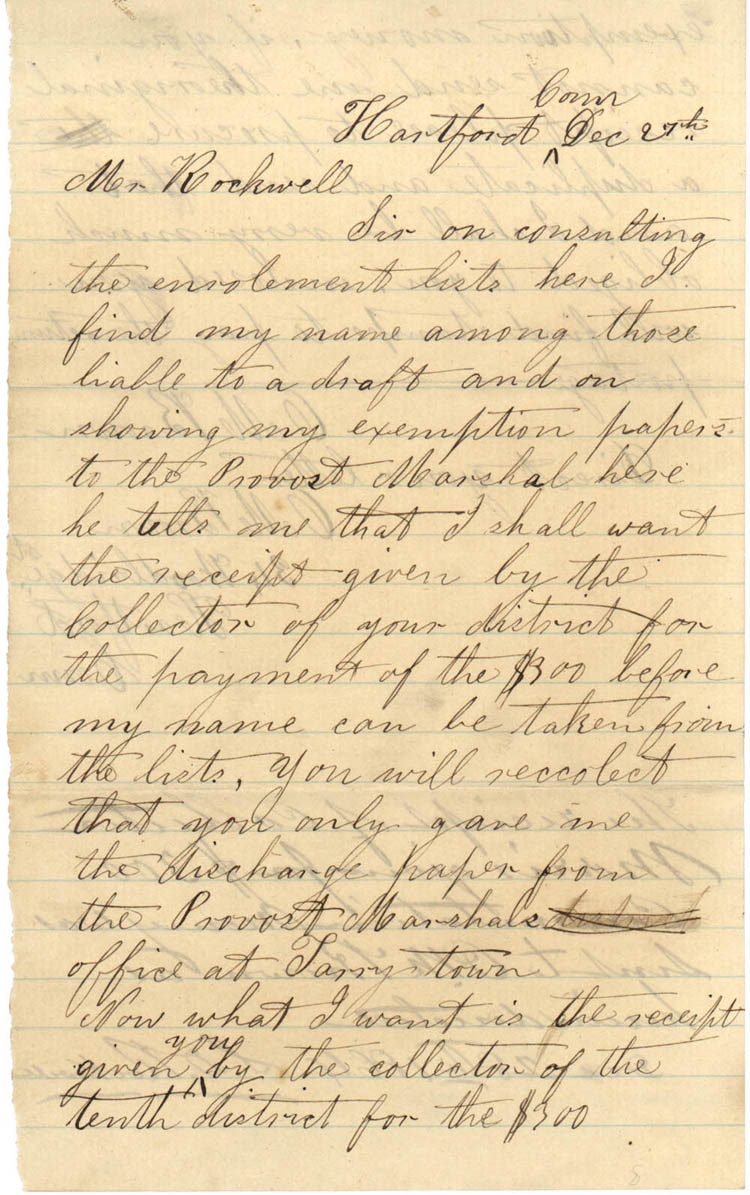 Hartford ^Conn Dec 27th
Mr Rockwell
Sir on consulting
the enrolement lists here I
find my name among those
liable to a draft and on
showing my exemption papers
to the Provost Marshal here
he tells me that I shall want
the receipt given by the
Collector of your district for
the payment of the $300 before
my name can be taken from
the lists, You will reccolect
that you only gave me
the discharge paper from
the Provost Marshals district
office at Tarrytown
Now what I want is the receipt
given ^you by the collector of the
tenth district for the $300